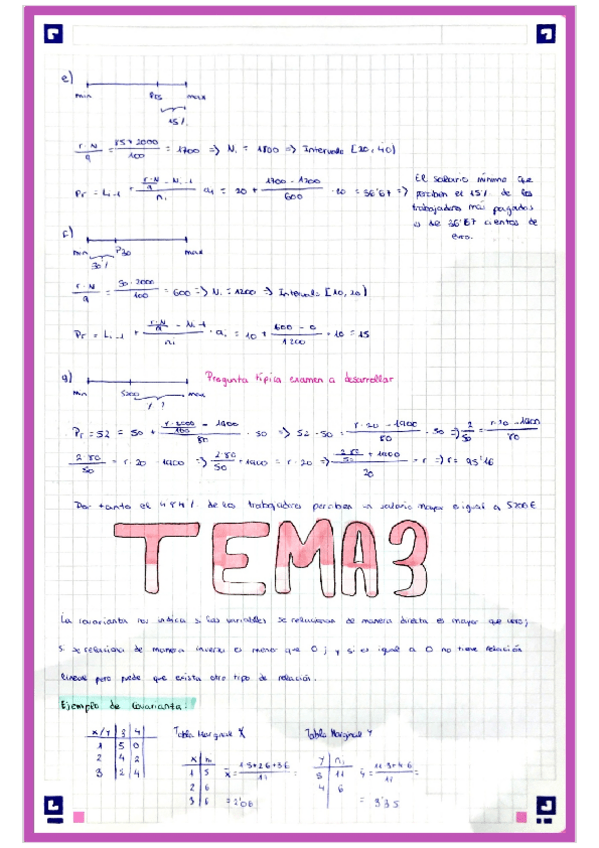 e)
min P85 max
15%
r·N/q = 85·2000/100 = 1700 => Ni = 1800 => Intervalo [20, 40)
Pr = Li-1 + (r·N/q - Ni-1)/ni · ai = 20 + (1700 - 1200)/600 · 20 = 36'67 =>
El salario mínimo que
perciben el 15% de los
trabajadores más pagados
es de 36'67 cientos de
euro.
f)
min P30 max
30%
r·N/q = 30·2000/100 = 600 => Ni = 1200 => Intervalo [10, 20)
Pr = Li-1 + (r·N/q - Ni-1)/ni · ai = 10 + (600 - 0)/1200 · 10 = 15
g)
Pregunta típica examen a desarrollar
min 5200 max
¿%?
Pr = 52 = 50 + (r·2000/100 - 1900)/80 · 50 => 52-50 = (r·20 - 1900)/80 · 50 => 2/50 = (r·20 - 1900)/80
2·80/50 = r·20 - 1900 => 2·80/50 + 1900 = r·20 => (2·80/50 + 1900)/20 = r => r = 95'16
Por tanto el 4'84% de los trabajadores perciben un salario mayor o igual a 5200€
TEMA 3
La covarianza nos indica si las variables se relacionan de manera directa es mayor que cero;
si se relaciona de manera inversa es menor que 0; y si es igual a 0 no tiene relación
lineal pero puede que exista otro tipo de relación.
Ejemplo de Covarianza:
x/y 3 4
1 5 0
2 4 2
3 2 4
Tabla Marginal X
x ni
1 5
2 6
3 6
= 2'06
Tabla Marginal Y
y ni
3 11
4 6
= 3'35